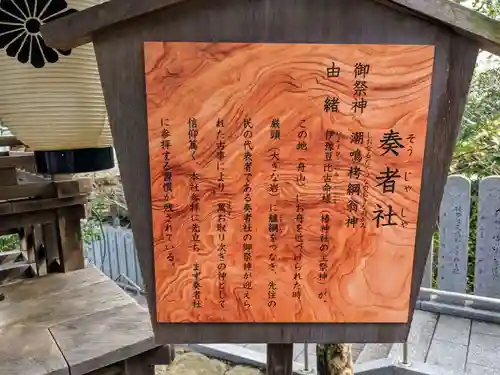 奏者社
そうじゃしゃ
御祭神 潮鳴栲綱翁神
由緒
伊豫豆比古命様(椿神社の主祭神)が、
この地(舟山)に御舟を近づけられた時
厳頭(大きな岩)に纜綱をつなぎ、先住の
民の代表者である奏者社の御祭神が迎えら
れた古事により、万お取り次ぎの神として
信仰篤く、本社参拝に先立ち、まず奏者社
に参拝する習慣が残されている。